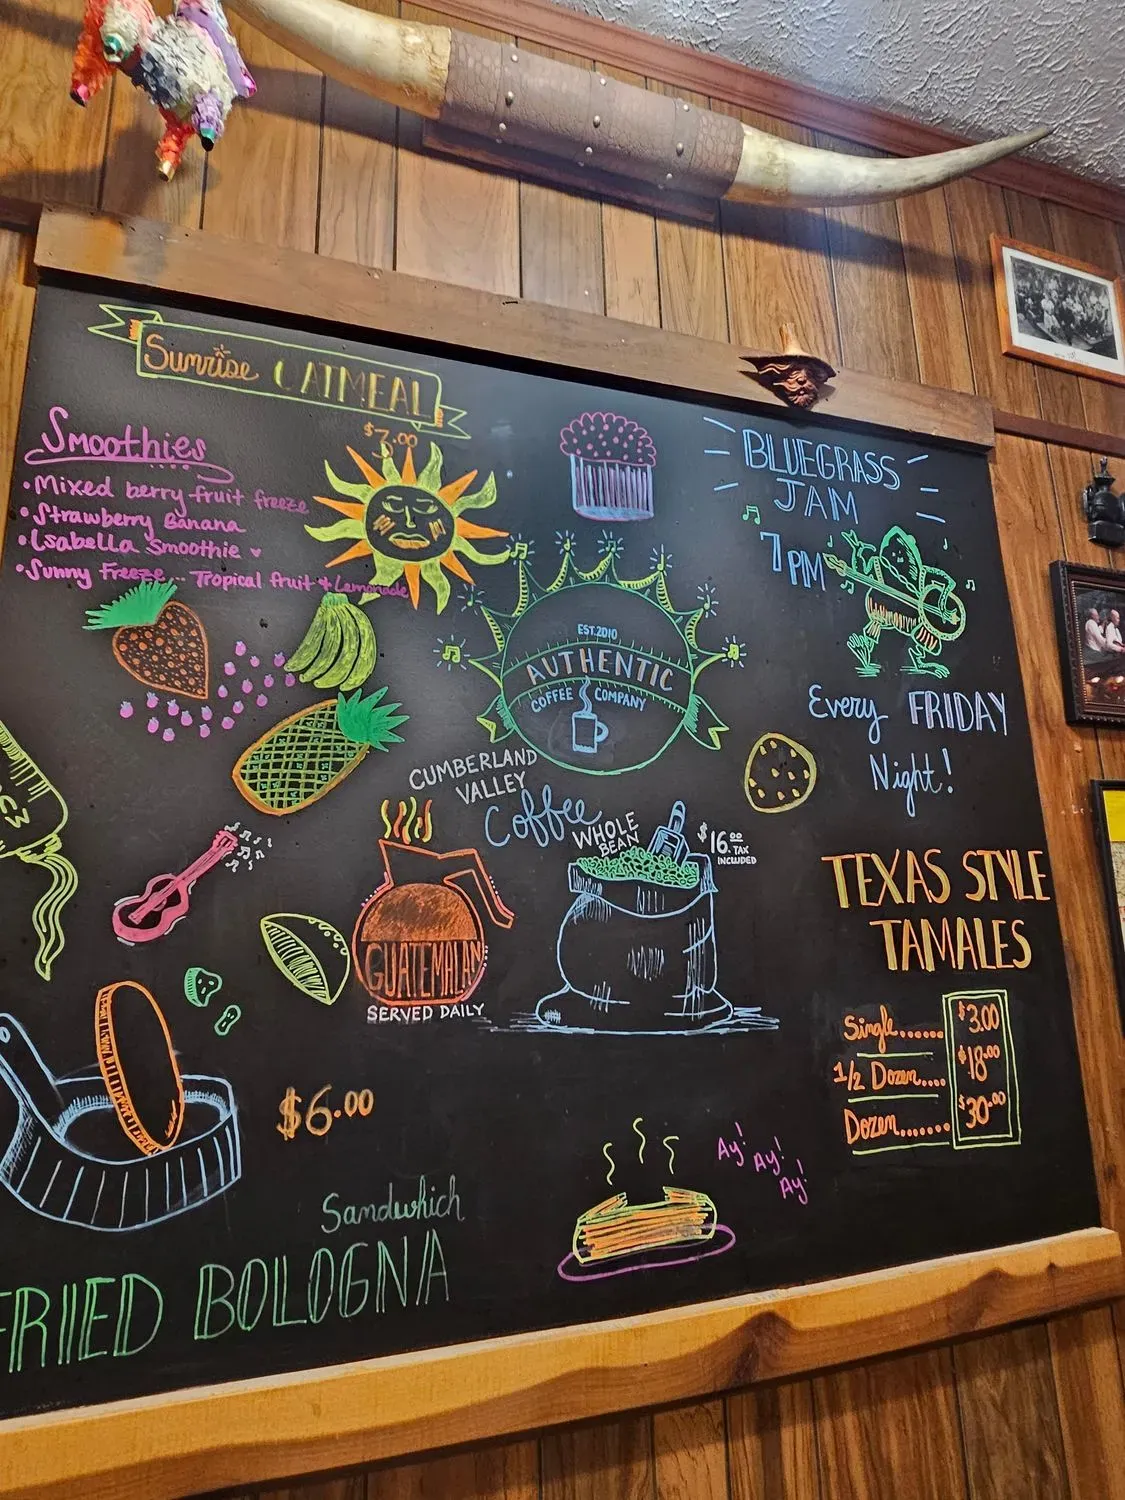 Sunrise OATMEAL
$7.00
Smoothies
• Mixed berry fruit freeze
• Strawberry Banana
• Isabella Smoothie
• Sunny Freeze... Tropical fruit + Lemonade
BLUEGRASS
JAM
7 PM
Every FRIDAY
Night!
EST. 2010
AUTHENTIC
COFFEE COMPANY
CUMBERLAND
VALLEY
Coffee
WHOLE
BEAN
$16.00
TAX
INCLUDED
GUATEMALAN
SERVED DAILY
TEXAS STYLE
TAMALES
Single....... $3.00
1/2 Dozen.... $18.00
Dozen....... $30.00
$6.00
Sandwhich
FRIED BOLOGNA
Ay!
Ay!
Ay!